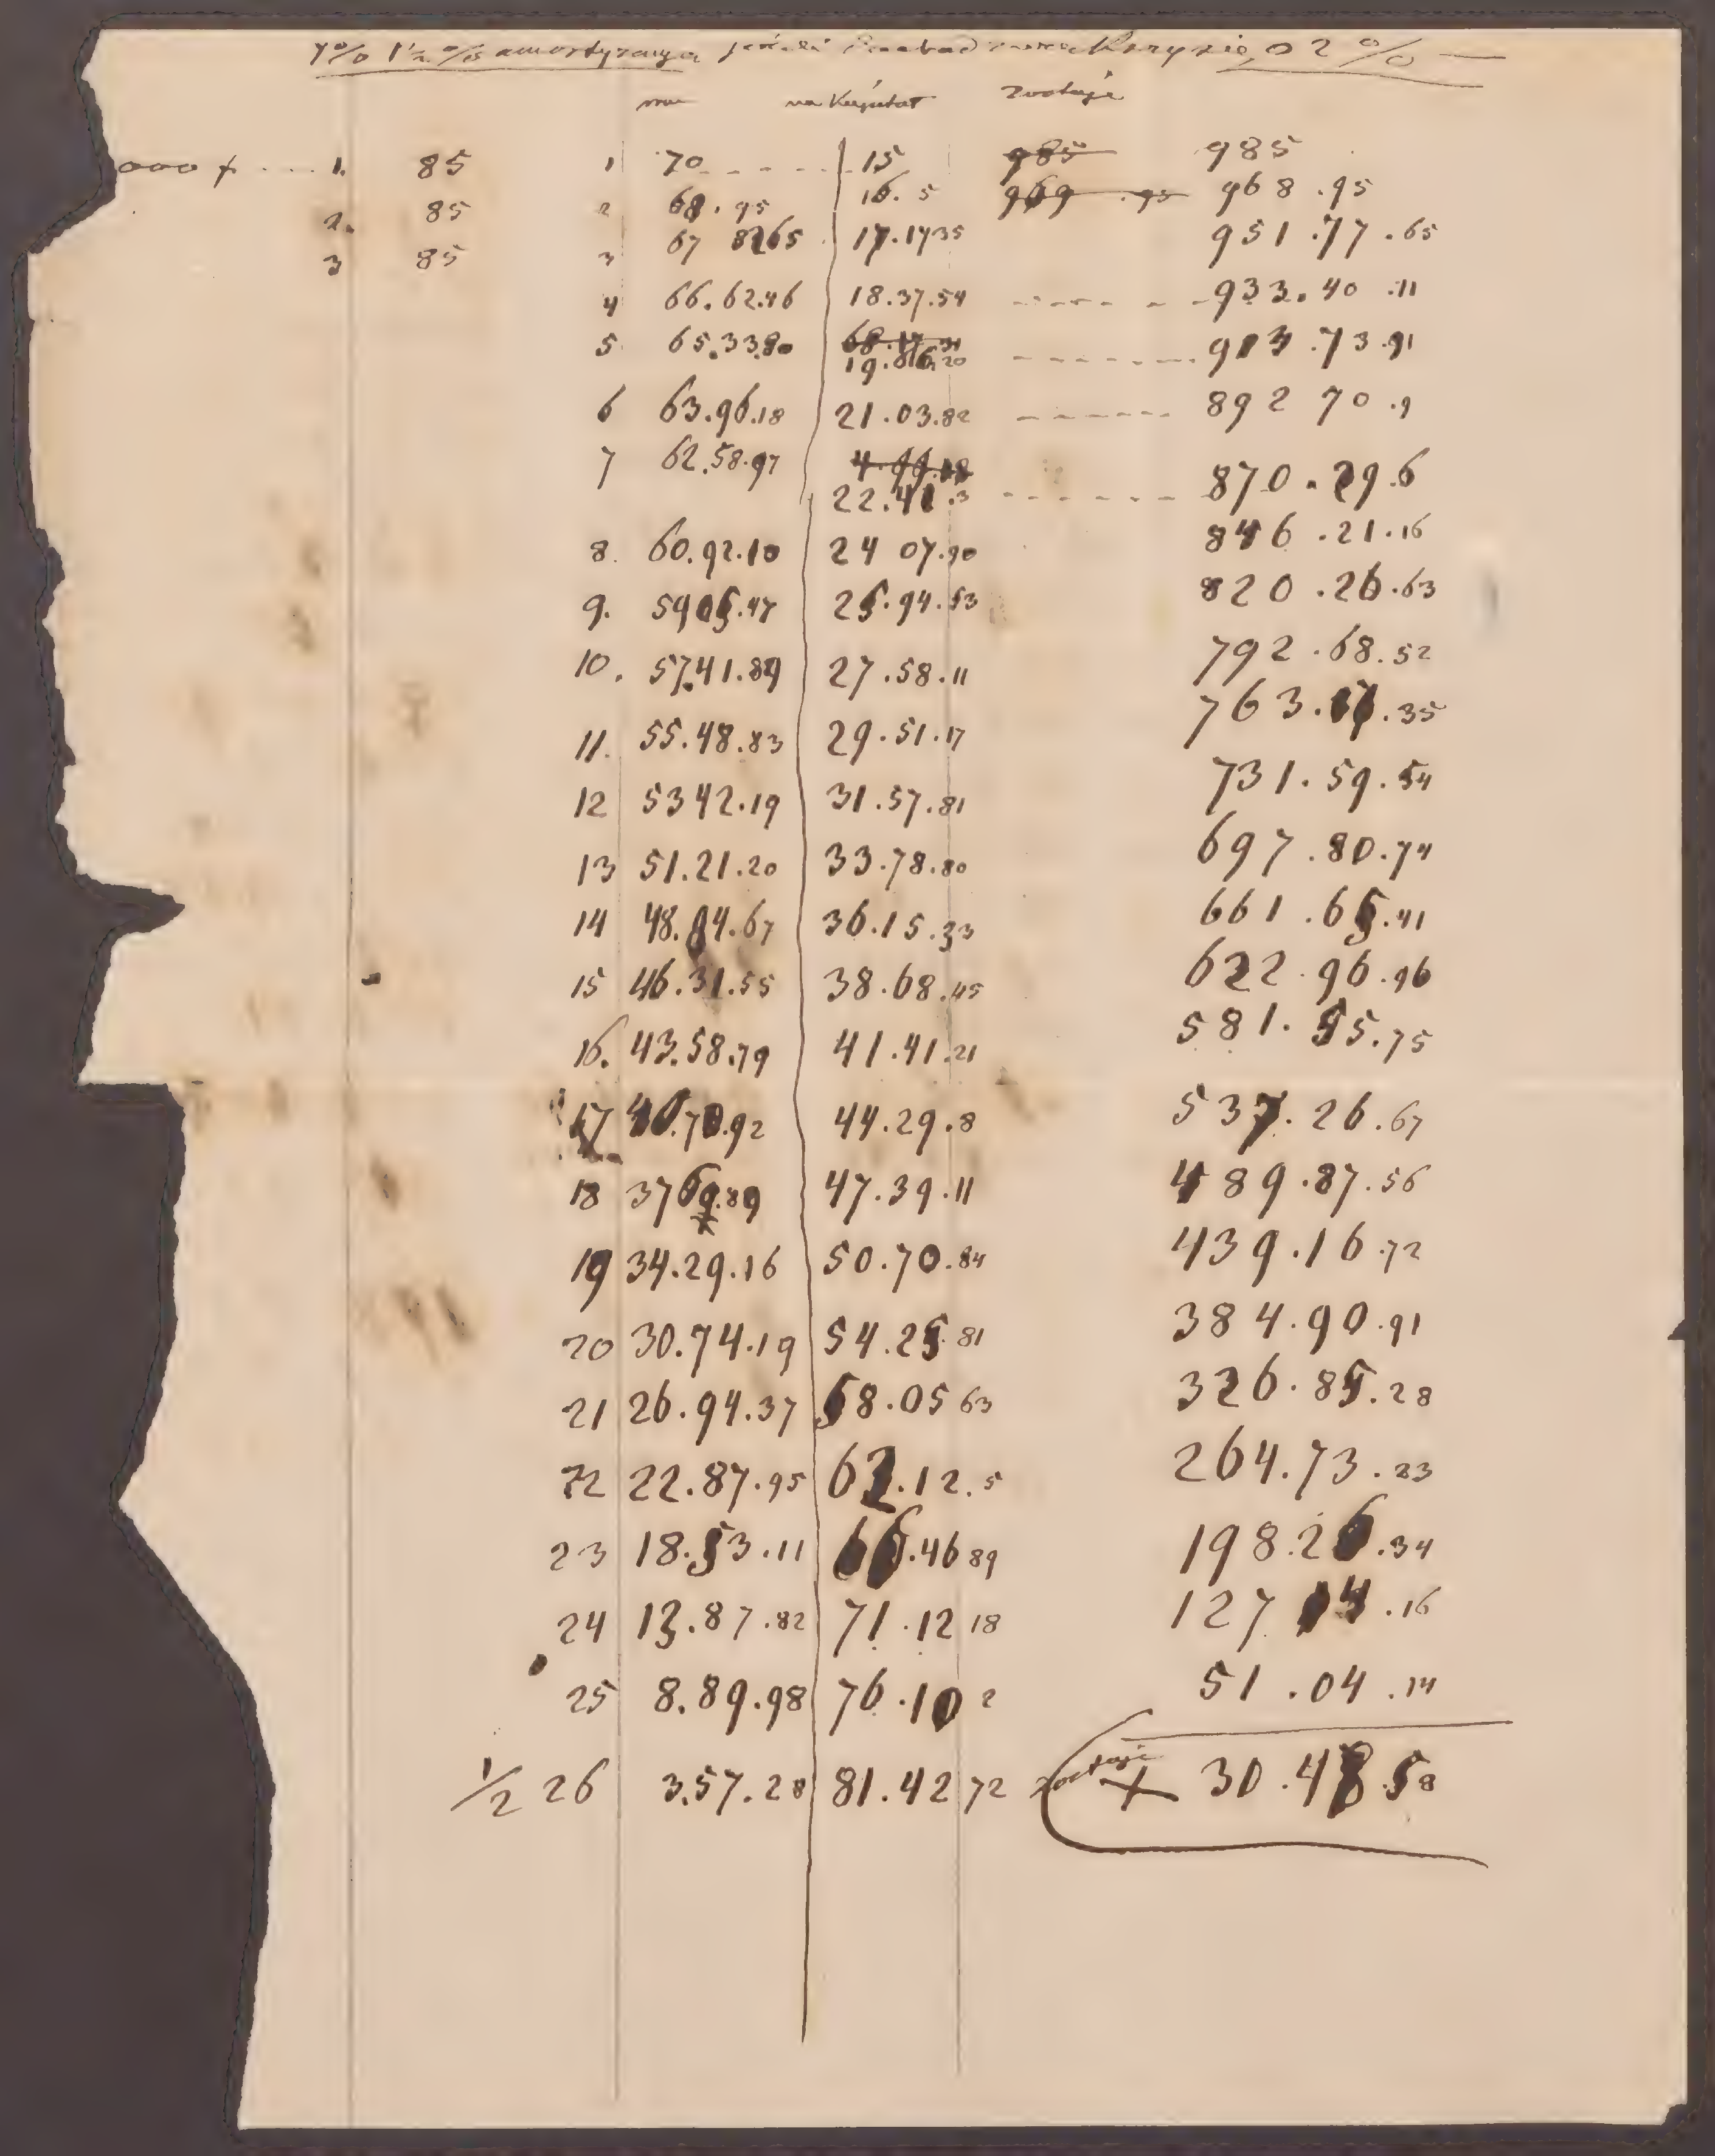 7% 1½ % amortyzacya jeżeli o 2 %
na Kapitał zostaje
000 f 1. 85 1 70 15 985 985
2. 85 2 68.95 16.5 969.95 968.95
3 85 3 67 8265 17.1735 951.77.65
4 66.62.46 18.37.54 933.40.11
5 65.33.80 19.66.20 913.73.91
6 63.96.18 21.03.82 892 70.9
7 62.58.97 22.41.3 870.29.6
8. 60.92.10 24 07.90 846.21.16
9. 5905.47 25.94.53 820.26.63
10. 57.41.89 27.58.11 792.68.52
11. 55.48.83 29.51.17 763.17.35
12 5342.19 31.57.81 731.59.54
13 51.21.20 33.78.80 697.80.74
14 48.84.67 36.15.33 661.65.41
15 46.31.55 38.68.45 622.96.96
16. 43.58.79 41.41.21 581.55.75
17 40.70.92 44.29.8 537.26.67
18 3769.89 47.39.11 489.87.56
19 34.29.16 50.70.84 439.16.72
20 30.74.19 54.25.81 384.90.91
21 26.94.37 58.05 63 326.85.28
22 22.87.95 62.12.5 264.73.23
23 18.53.11 66.46 89 198.26.34
24 13.87.82 71.12 18 127 14.16
25 8.89.98 76.10 2 51.04.14
½ 26 3.57.28 81.42 72 zostaje + 30.48.58